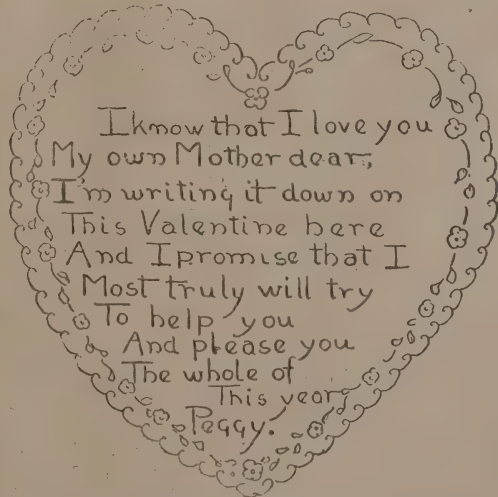 I know that I love you
My own Mother dear,
I'm writing it down on
This Valentine here
And I promise that I
Most truly will try
To help you
And please you
The whole of
This year
Peggy.